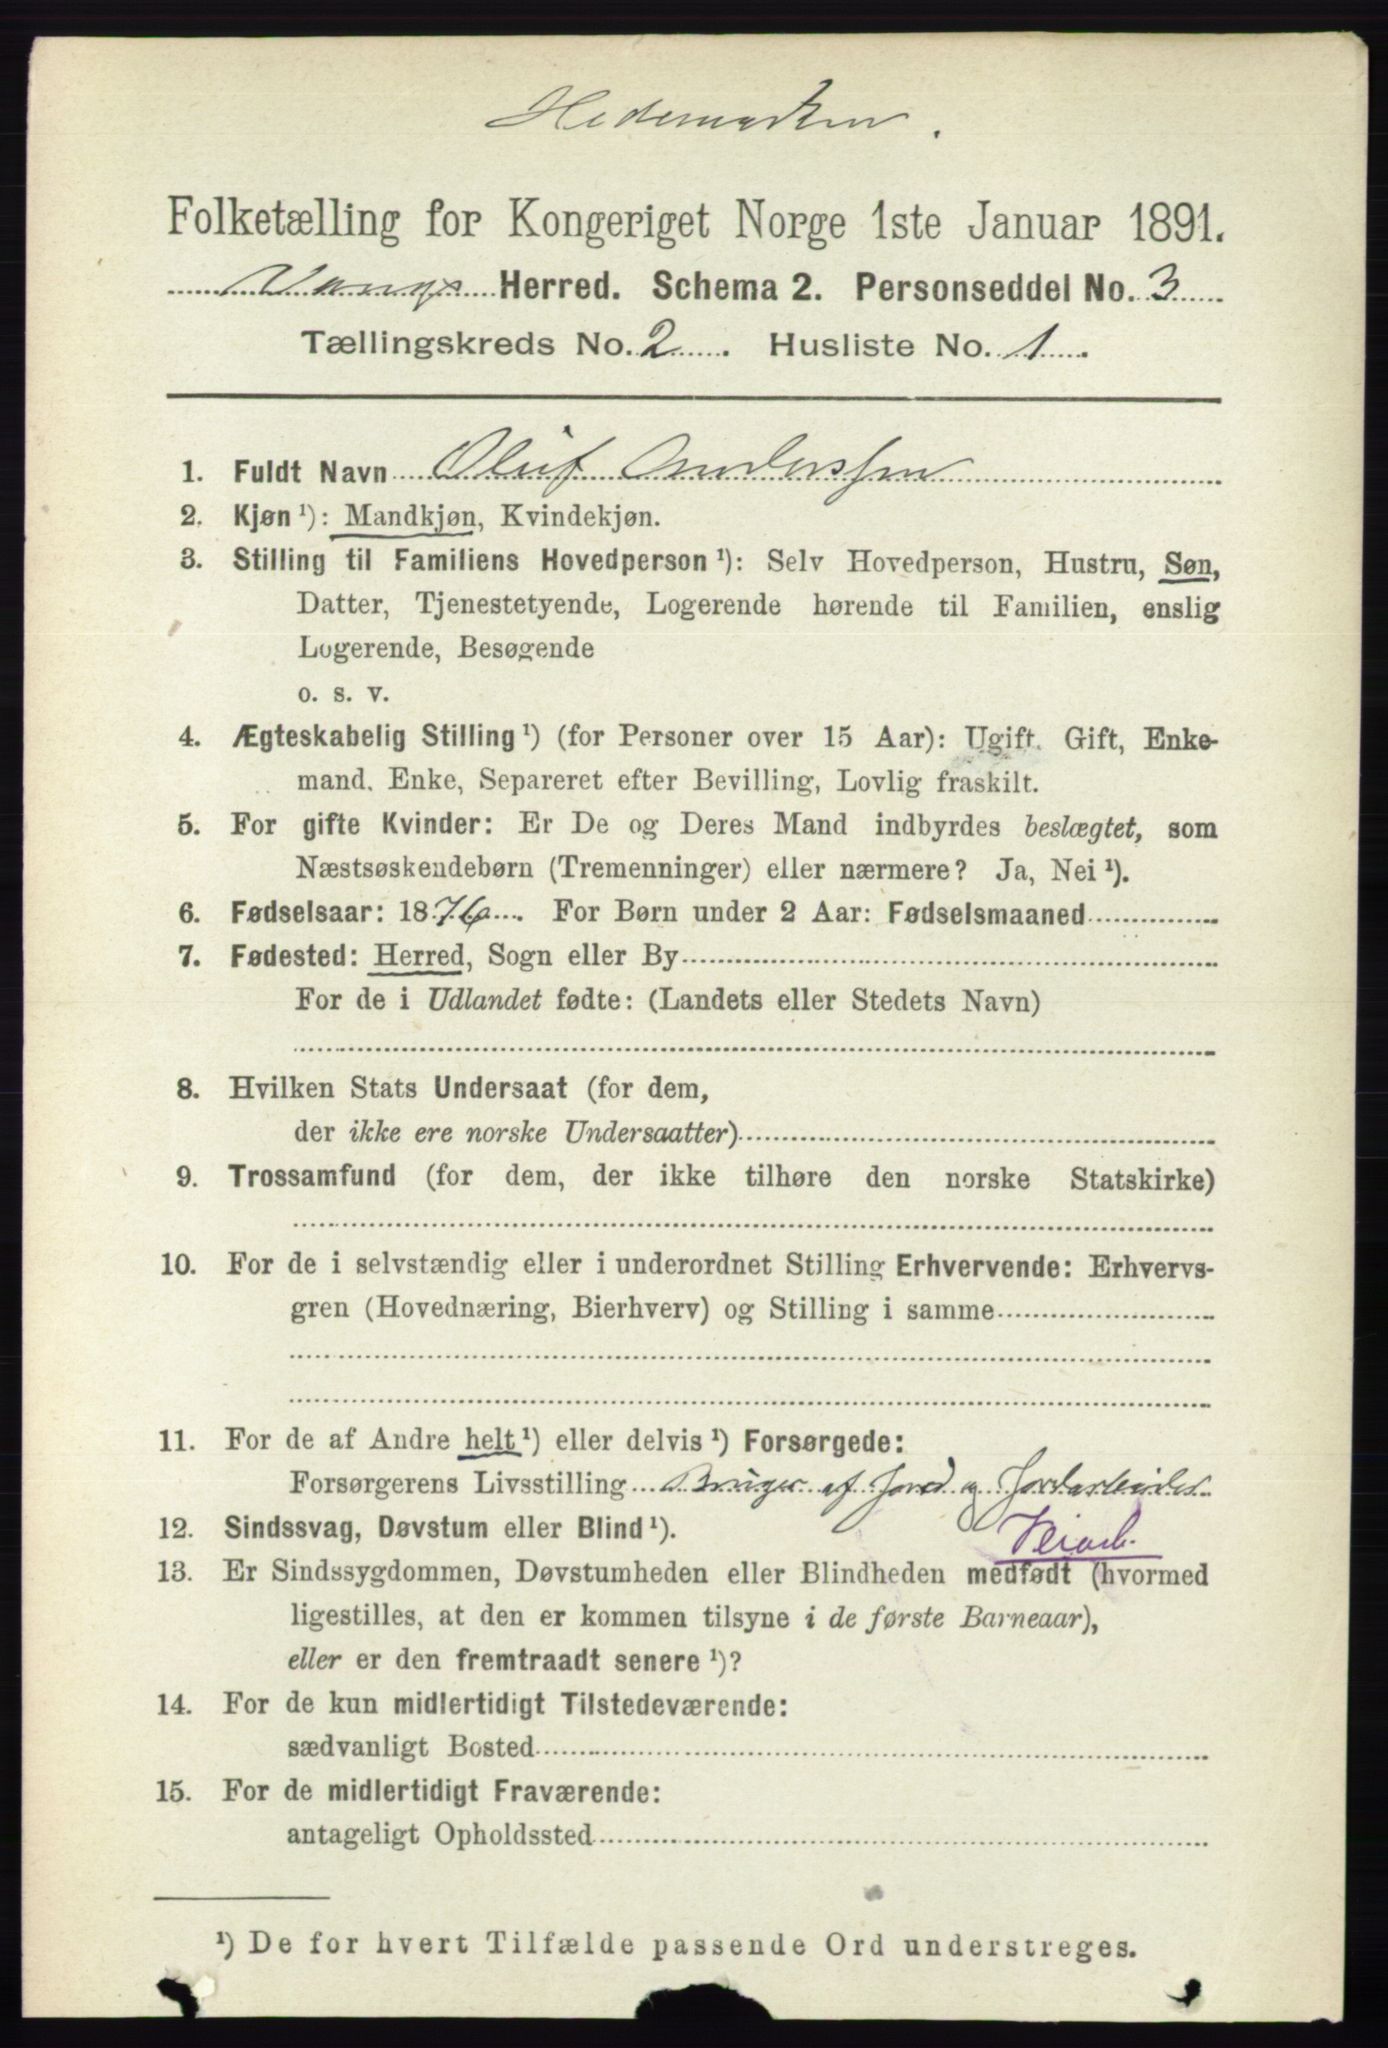 Hedemarken.
Folketælling for Kongeriget Norge 1ste Januar 1891.
Vangs Herred. Schema 2. Personseddel No. 3
Tællingskreds No. 2. Husliste No. 1.
1. Fuldt Navn Oluf Anderssen
2. Kjøn ¹): Mandkjøn, Kvindekjøn.
3. Stilling til Familiens Hovedperson ¹): Selv Hovedperson, Hustru, Søn,
Datter, Tjenestetyende, Logerende hørende til Familien, enslig
Logerende, Besøgende
o. s. v.
4. Ægteskabelig Stilling ¹) (for Personer over 15 Aar): Ugift, Gift, Enke-
mand, Enke, Separeret efter Bevilling, Lovlig fraskilt.
5. For gifte Kvinder: Er De og Deres Mand indbyrdes beslægtet, som
Næstsøskendebørn (Tremenninger) eller nærmere? Ja, Nei ¹).
6. Fødselsaar: 1876. For Børn under 2 Aar: Fødselsmaaned
7. Fødested: Herred, Sogn eller By
For de i Udlandet fødte: (Landets eller Stedets Navn)
8. Hvilken Stats Undersaat (for dem,
der ikke ere norske Undersaatter)
9. Trossamfund (for dem, der ikke tilhøre den norske Statskirke)
10. For de i selvstændig eller i underordnet Stilling Erhvervende: Erhvervs-
gren (Hovednæring, Bierhverv) og Stilling i samme
11. For de af Andre helt ¹) eller delvis ¹) Forsørgede:
Forsørgerens Livsstilling Bruger af Jord og Jordarbeider
12. Sindssvag, Døvstum eller Blind ¹).
Veiarb.
13. Er Sindssygdommen, Døvstumheden eller Blindheden medfødt (hvormed
ligestilles, at den er kommen tilsyne i de første Barneaar),
eller er den fremtraadt senere ¹)?
14. For de kun midlertidigt Tilstedeværende:
sædvanligt Bosted
15. For de midlertidigt Fraværende:
antageligt Opholdssted
¹) De for hvert Tilfælde passende Ord understreges.